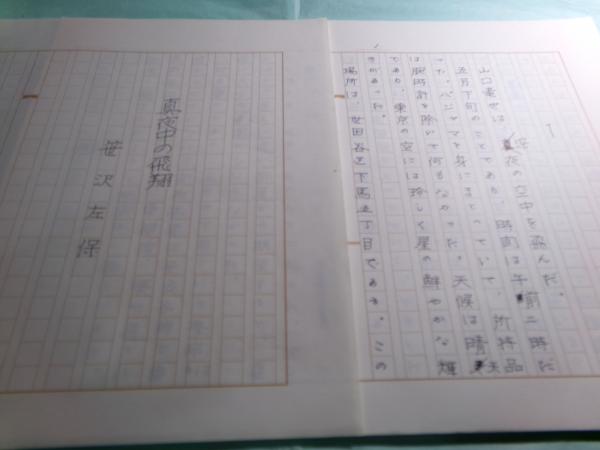 真夜中の飛翔
笹沢左保
1
山口竜也は深夜の空中を飛んだ。
五月下旬のことであり、時刻は午前二時だ
った。パジャマを身にまとっていて、所持品
は腕時計を除いて何もなかった。天候は晴天
であり、東京の空には珍しく星の鮮やかな輝
きがあった。
場所は、世田谷区下馬五丁目である。この